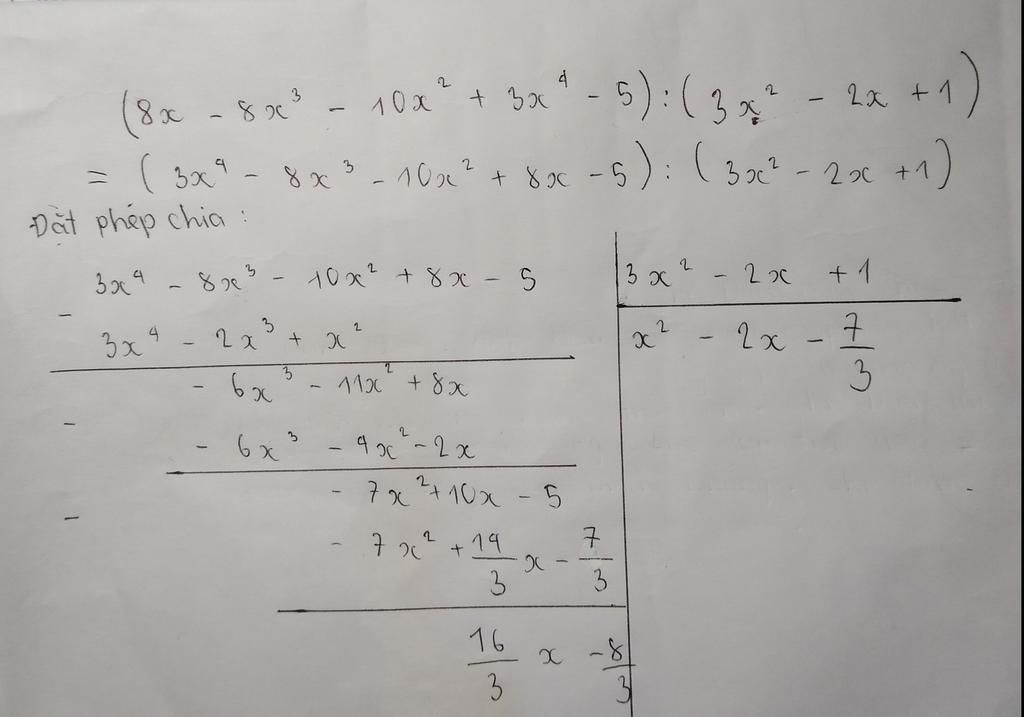 (8x - 8x³ - 10x² + 3x⁴ - 5) : (3x² - 2x + 1)
= (3x⁴ - 8x³ - 10x² + 8x - 5) : (3x² - 2x + 1)
Đặt phép chia :
3x⁴ - 8x³ - 10x² + 8x - 5 | 3x² - 2x + 1
-
3x⁴ - 2x³ + x² | x² - 2x - 7/3
- 6x³ - 11x² + 8x
-
- 6x³ - 4x² - 2x
- 7x² + 10x - 5
-
- 7x² + 14/3 x - 7/3
16/3 x - 8/3